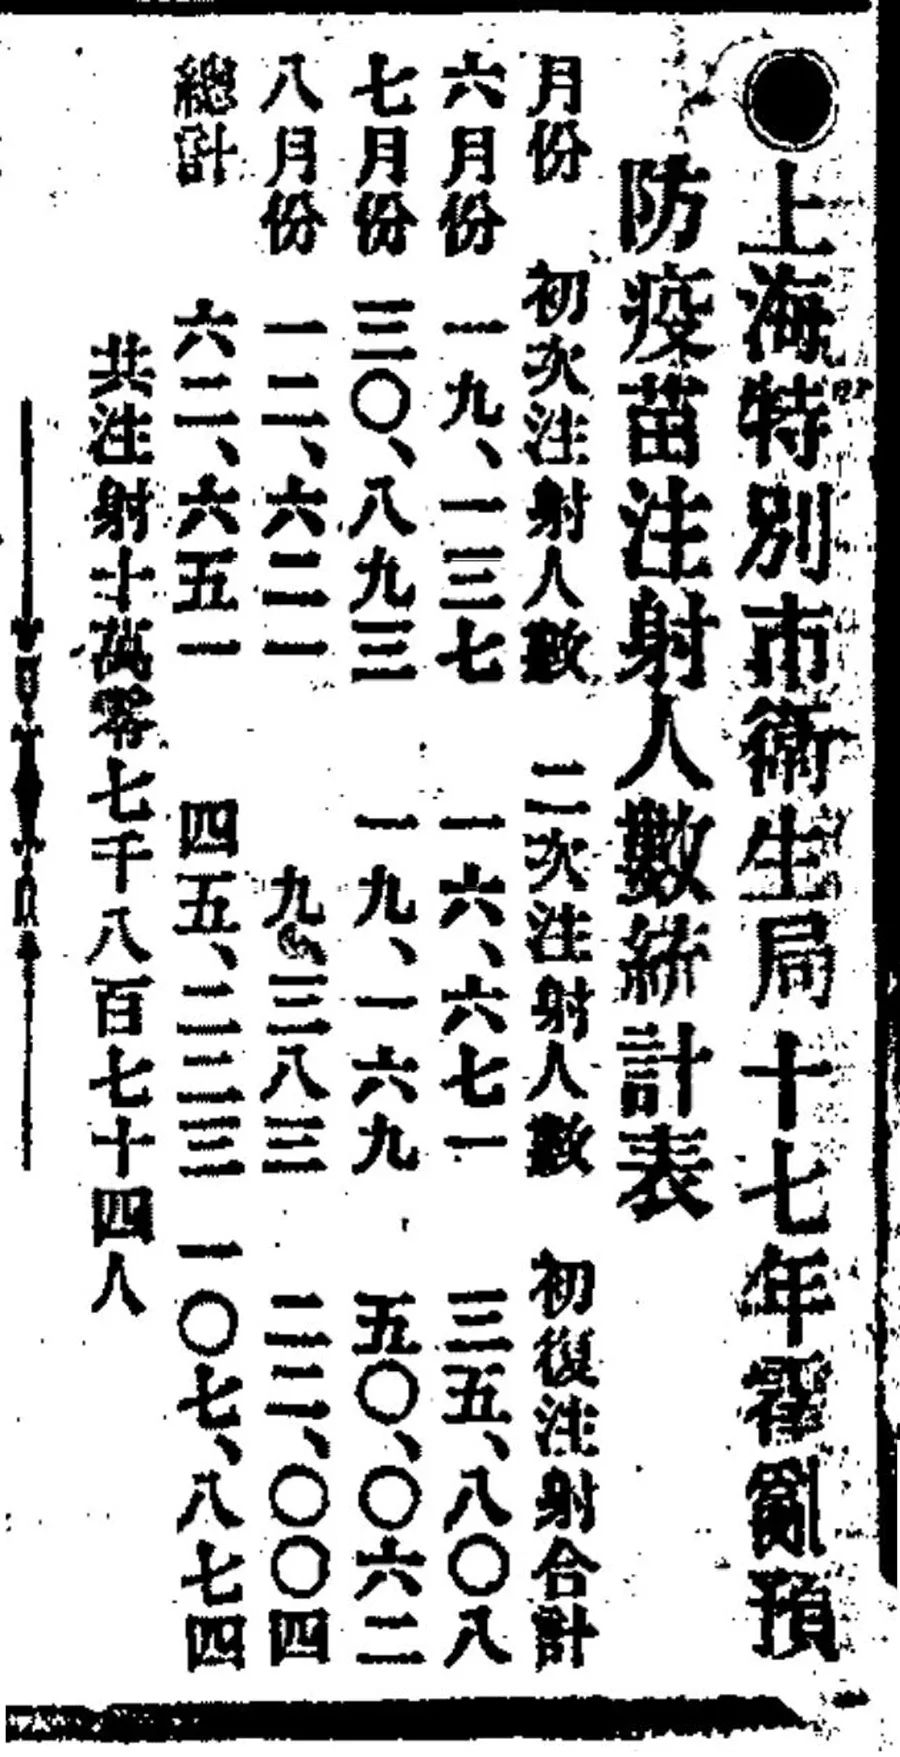 ●上海特別市衛生局十七年霍亂預
防疫苗注射人數統計表
月份 初次注射人數 二次注射人數 初復注射合計
六月份 一九、一三七 一六、六七一 三五、八〇八
七月份 三〇、八九三 一九、一六九 五〇、〇六二
八月份 一二、六二一 九、三八三 二二、〇〇四
總計 六二、六五一 四五、二二三 一〇七、八七四
共注射十萬零七千八百七十四人